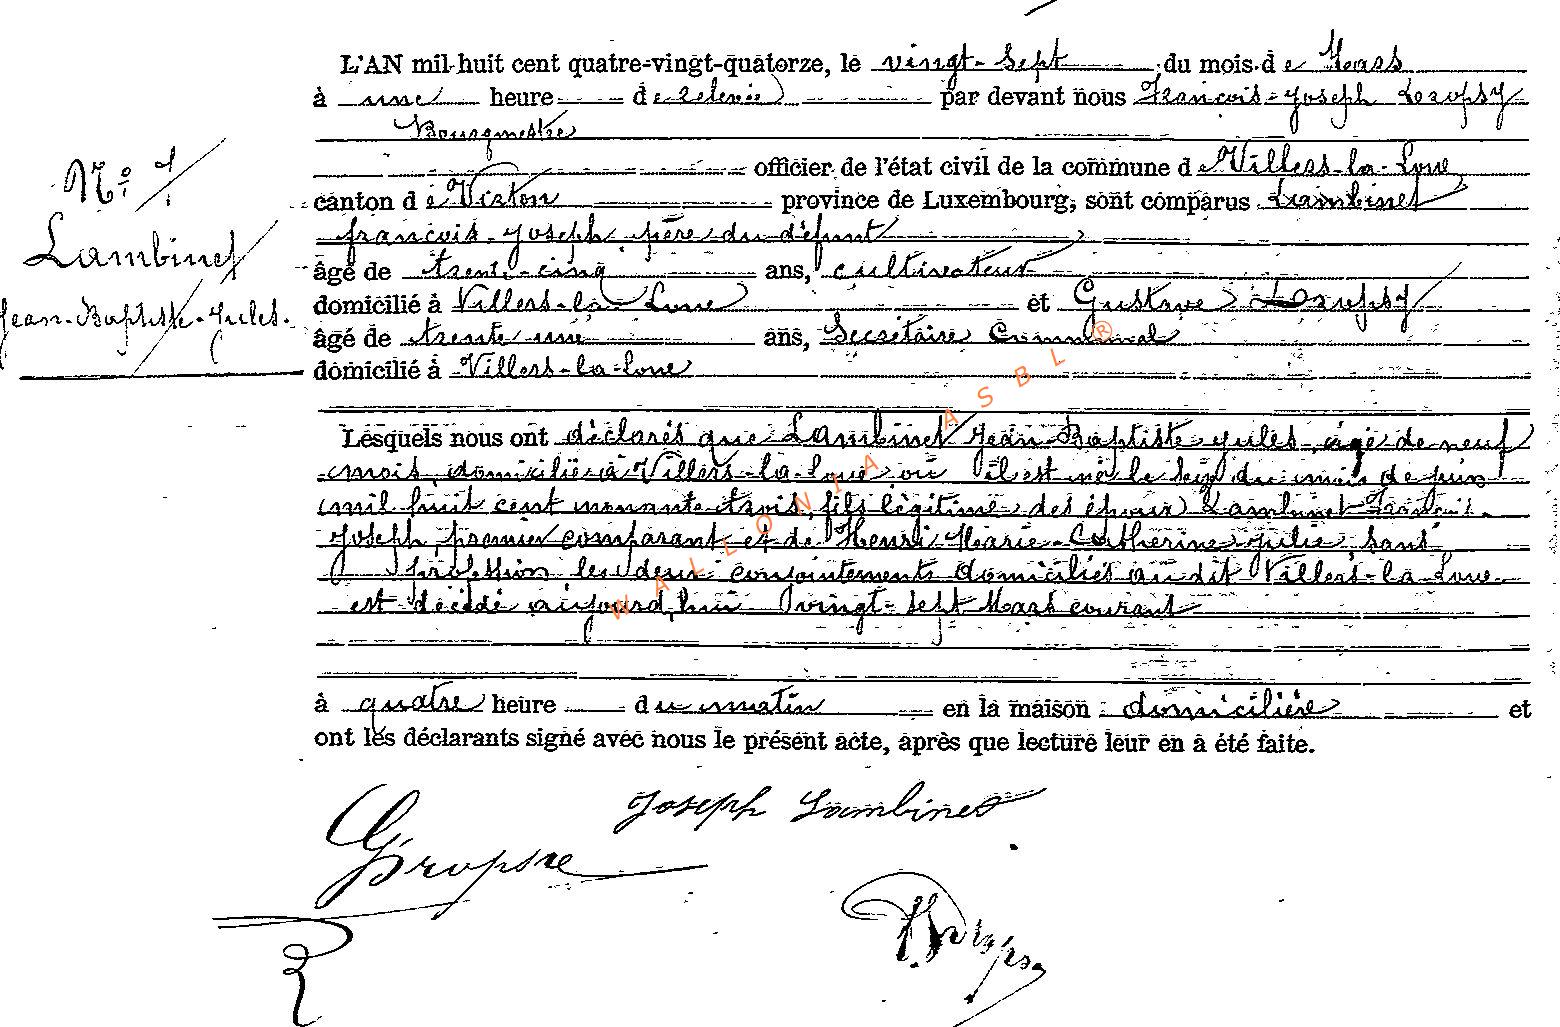 L'AN mil huit cent quatre-vingt-quatorze, le vingt-sept du mois de Mars
à une heure de relevée par devant nous François-Joseph
Bourgmestre
officier de l'état civil de la commune de Villers-la-Loue
canton de Virton province de Luxembourg, sont comparus Lambinet
françois-joseph père du défunt
âgé de trente-cinq ans, cultivateur
domicilié à Villers-la-Loue et Gustave
âgé de trente une ans, Secrétaire Communal
domicilié à Villers-la-loue
N° 4
Lambinet
Jean-Baptiste-Jules.
Lesquels nous ont déclarés que Lambinet Jean-Baptiste-Jules, âgé de neuf
mois, domicilié à Villers-la-loue où il est né le six du mois de juin
mil huit cent nonante trois, fils légitime des époux Lambinet François-
Joseph, premier comparant et de Henri Marie-Catherine-Julie, sans
profession, les deux conjointements domiciliés au dit Villers-la-Loue
est décédé aujourd'hui vingt-sept Mars courant
à quatre heure du matin en la maison domicilière et
ont les déclarants signé avec nous le présent acte, après que lecture leur en a été faite.
Joseph Lambinet
WALLONIA ASBL ®